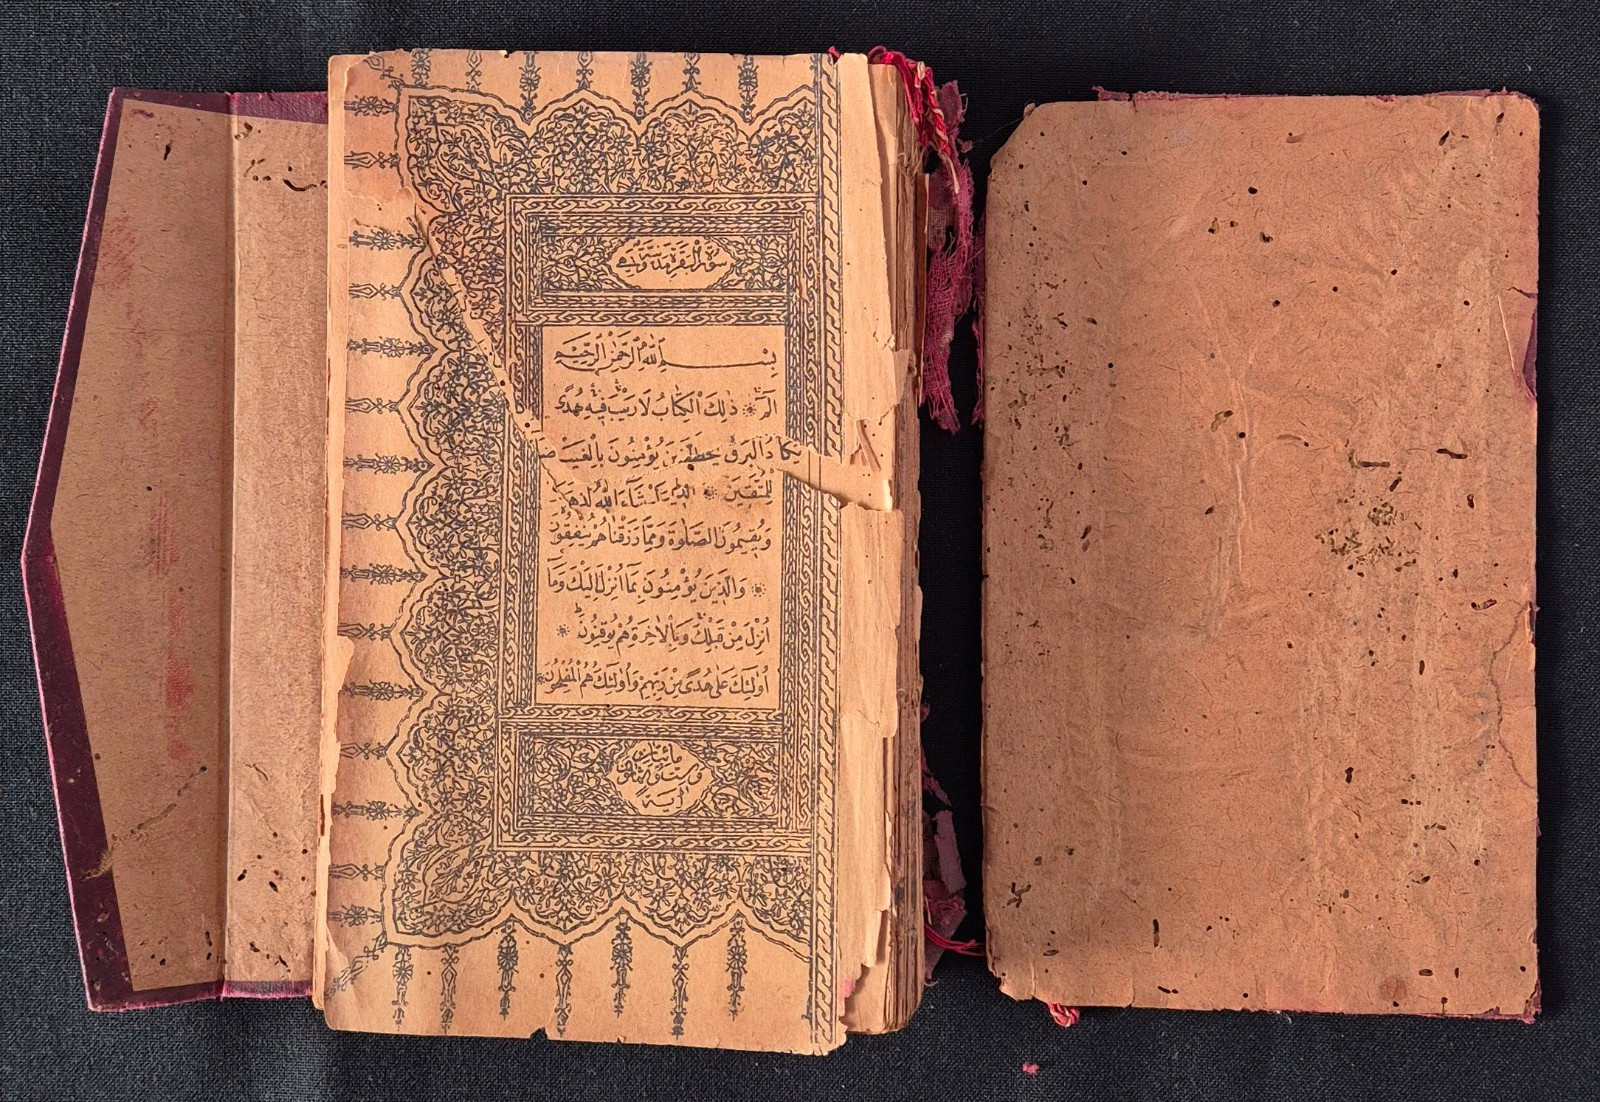 سُورَةُ الْبَقَرَةِ مَدَنِيَّةٌ وَهِيَ
بِسْمِ اللهِ الرَّحْمٰنِ الرَّحِيمِ
الٓمٓ ۞ ذٰلِكَ الْكِتَابُ لَا رَيْبَ فِيهِ هُدًى
يَكَادُ الْبَرْقُ يَخْطَفُ يُؤْمِنُونَ بِالْغَيْبِ
لِلْمُتَّقِينَ ۞ شَآءَ اللهُ لَذَهَبَ
وَيُقِيمُونَ الصَّلٰوةَ وَمِمَّا رَزَقْنَاهُمْ يُنْفِقُونَ
۞ وَالَّذِينَ يُؤْمِنُونَ بِمَا اُنْزِلَ اِلَيْكَ وَمَا
اُنْزِلَ مِنْ قَبْلِكَ وَبِالْاٰخِرَةِ هُمْ يُوقِنُونَ ۞
اُولٰٓئِكَ عَلٰى هُدًى مِنْ رَبِّهِمْ وَاُولٰٓئِكَ هُمُ الْمُفْلِحُونَ ۞
مائتان
وست وثمانون
آية